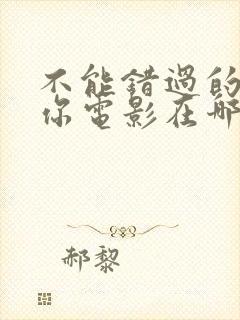 不能错過的
你電影在哪
郝黎